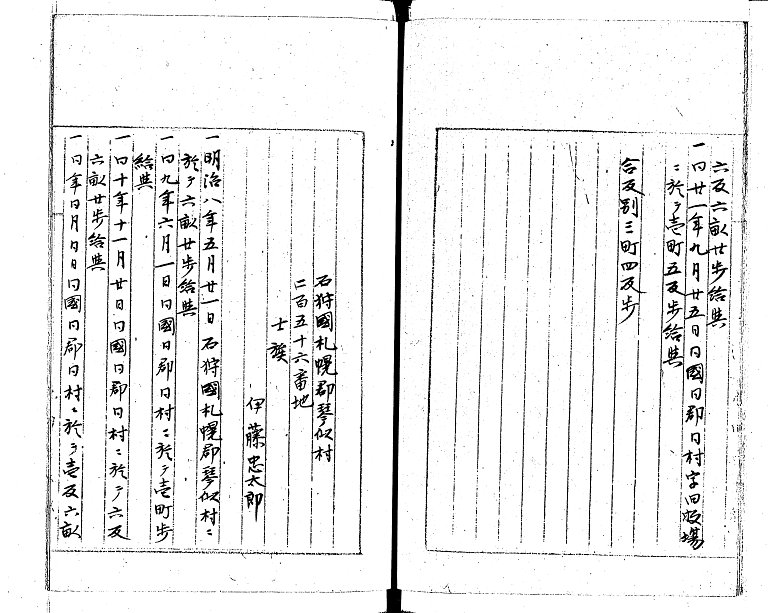 六反六畝廿歩給與
一同廿一年九月廿五日同國同郡同村字田坂場
ニ於テ壱町五反歩給與
合反別三町四反歩
石狩國札幌郡琴似村
二百五十六番地
士族
伊藤忠太郎
一明治八年五月廿一日石狩國札幌郡琴似村ニ
於テ六畝廿歩給與
一同九年六月一日同國同郡同村ニ於テ壱町歩
給與
一同十年十一月廿日同國同郡同村ニ於テ六反
六畝廿歩給與
一同年同月同日同國同郡同村ニ於テ壱反六畝